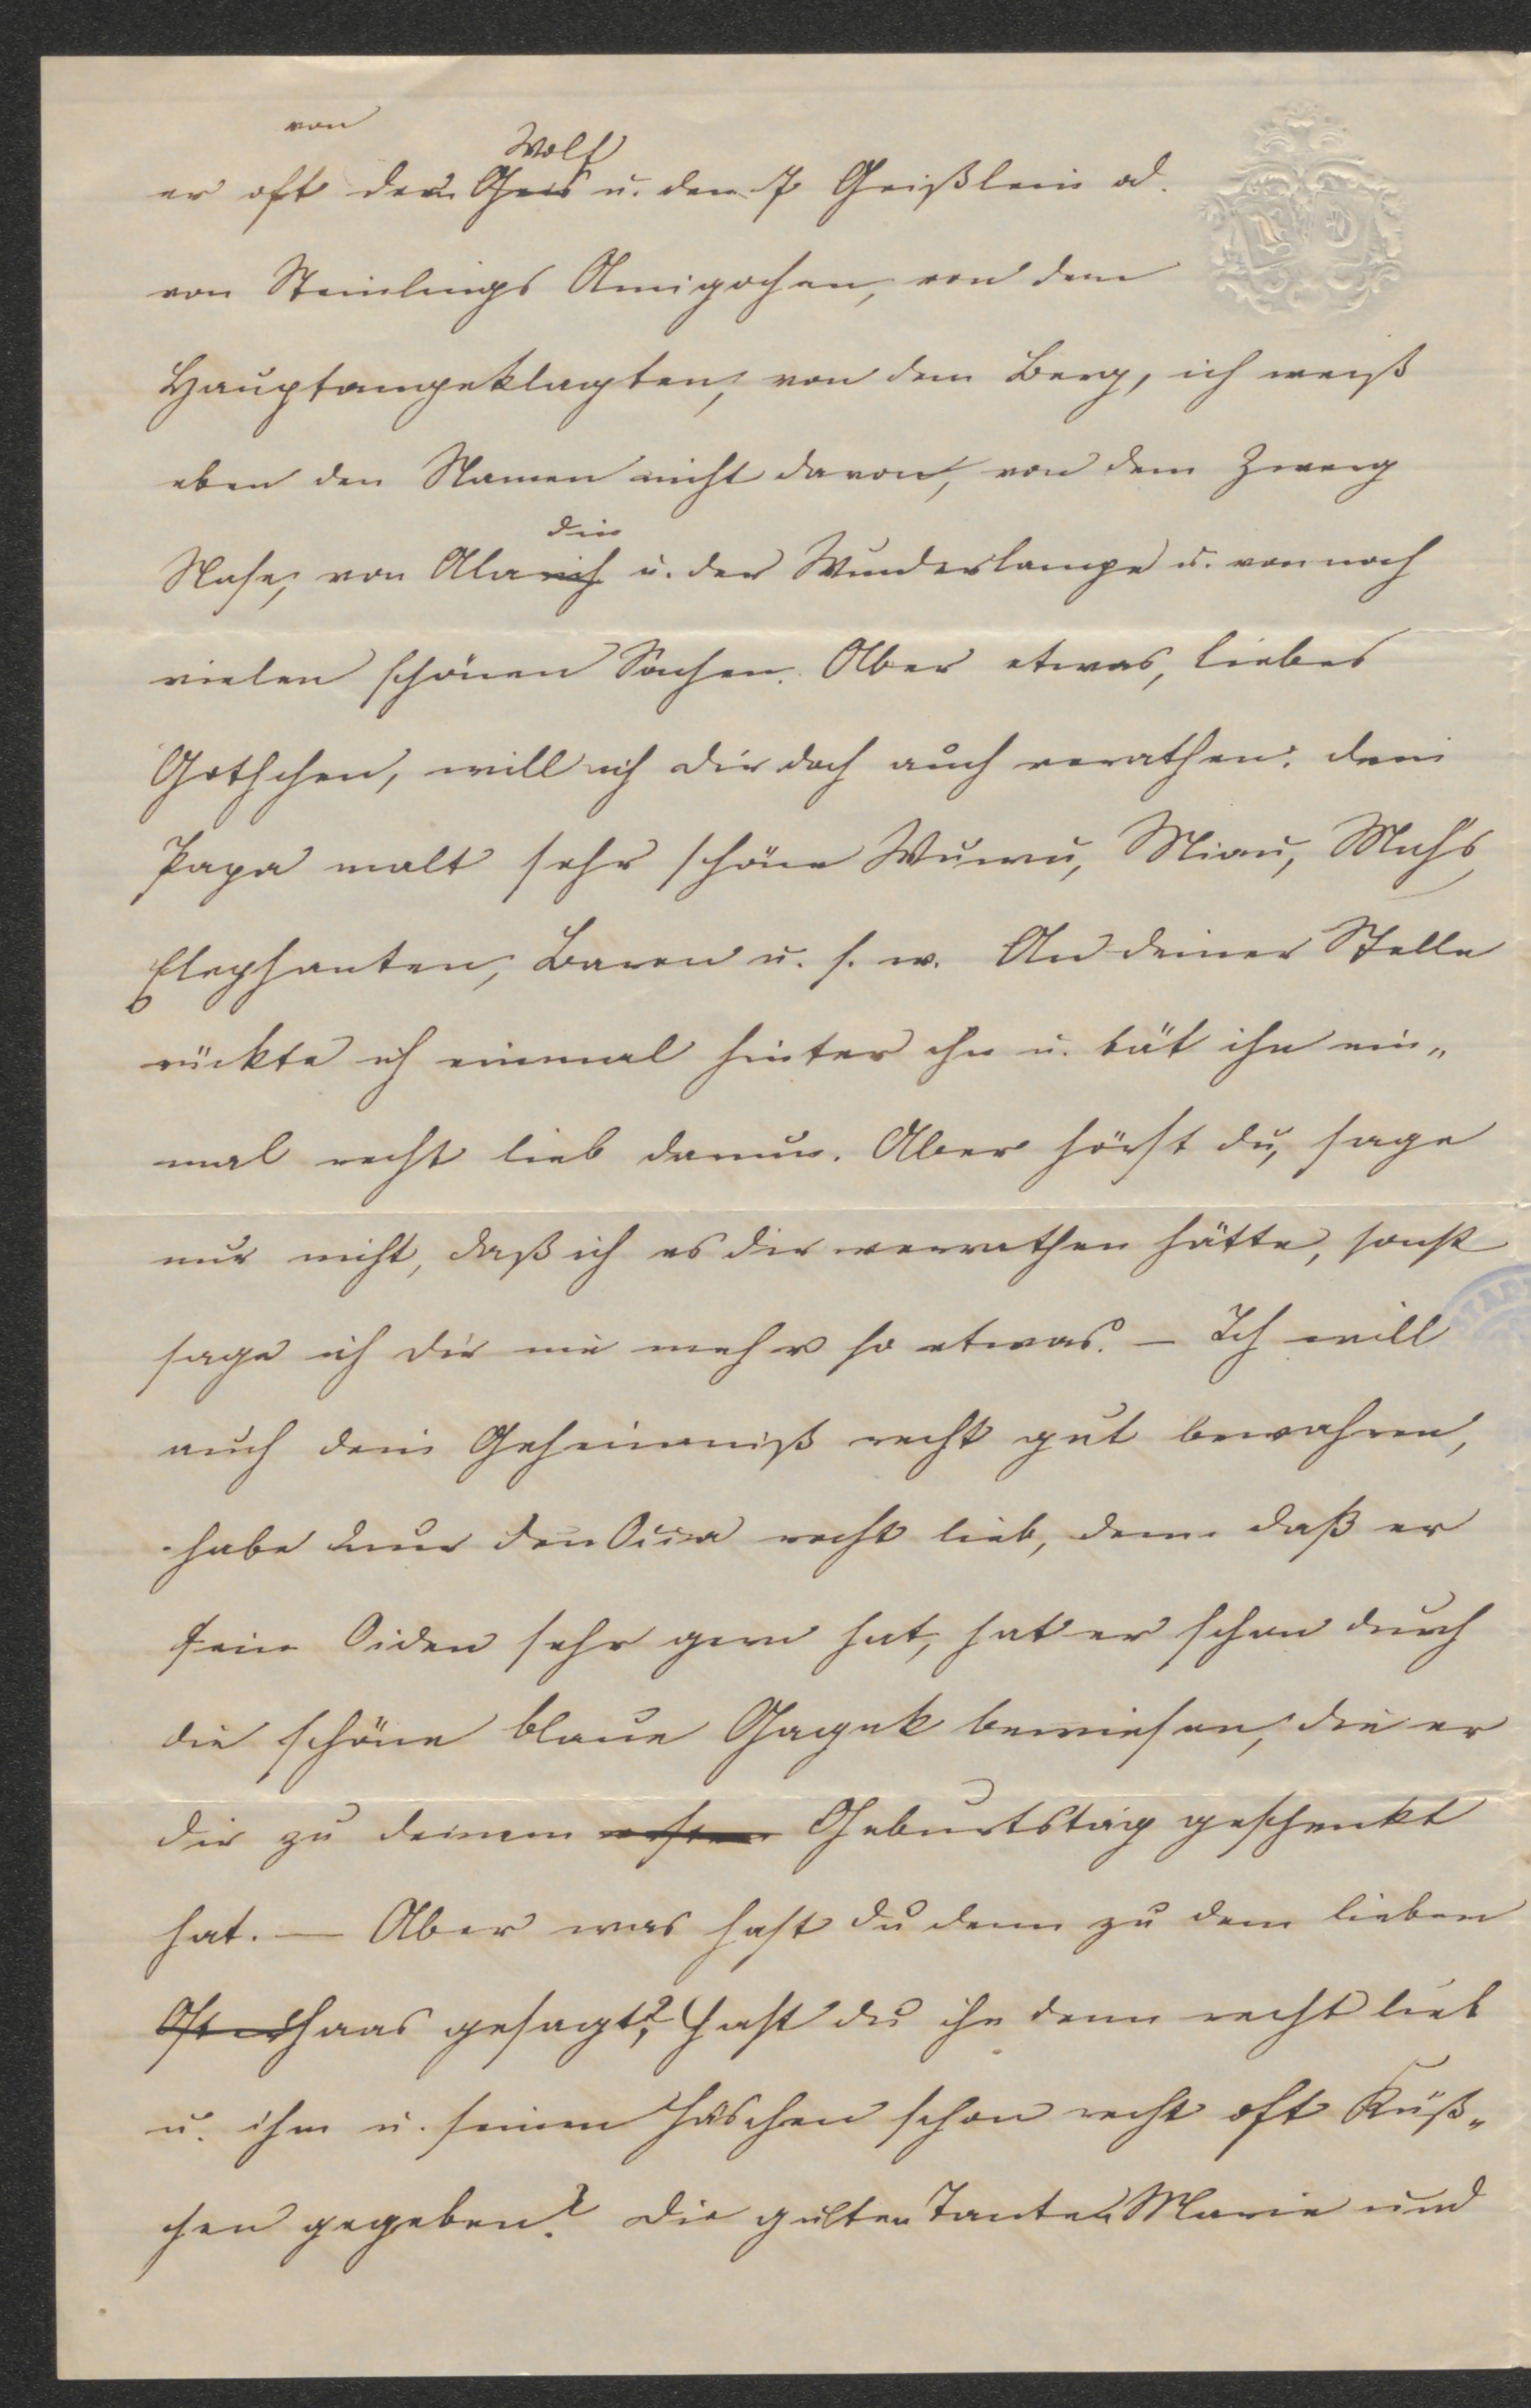 von
Wolf
er oft dem Geis u. den 7 Geißlein od.
von Steinlings Amigochen, von dem
Hauptangeklagten, von dem Berg, ich weiß
eben den Namen nicht davon, von dem Zwerg
din
Nase, von Alarich u. der Wunderlampe u. von noch
vielen schönen Sachen. Aber etwas, liebes
Gothchen, will ich dir doch auch verathen: dein
Papa malt sehr schöne Wuwu, Miau, Muhs,
Elephanten, Baren u. s. w. An deiner Stelle
rückte ich einmal hinter ihn u. bät ihn ein„
mal recht lieb darum. Aber hörst du, sage
nur nicht, daß ich es dir verrathen hätte, sonst
sage ich dir nie mehr so etwas. – Ich will
auch dein Geheimniß recht gut bewahren,
habe nur den recht lieb, denn daß er
sein sehr gern hat, hat er schon durch
die schöne blaue bewiesen, die er
dir zu deinem ersten Geburtstag geschenkt
hat. — Aber was hast du denn zu dem lieben
Osterhaas gesagt? Hast du ihn denn recht lieb
u. ihm u. seinem Häschen schon recht oft Küß„
chen gegeben? Die guten Tanten Marie und